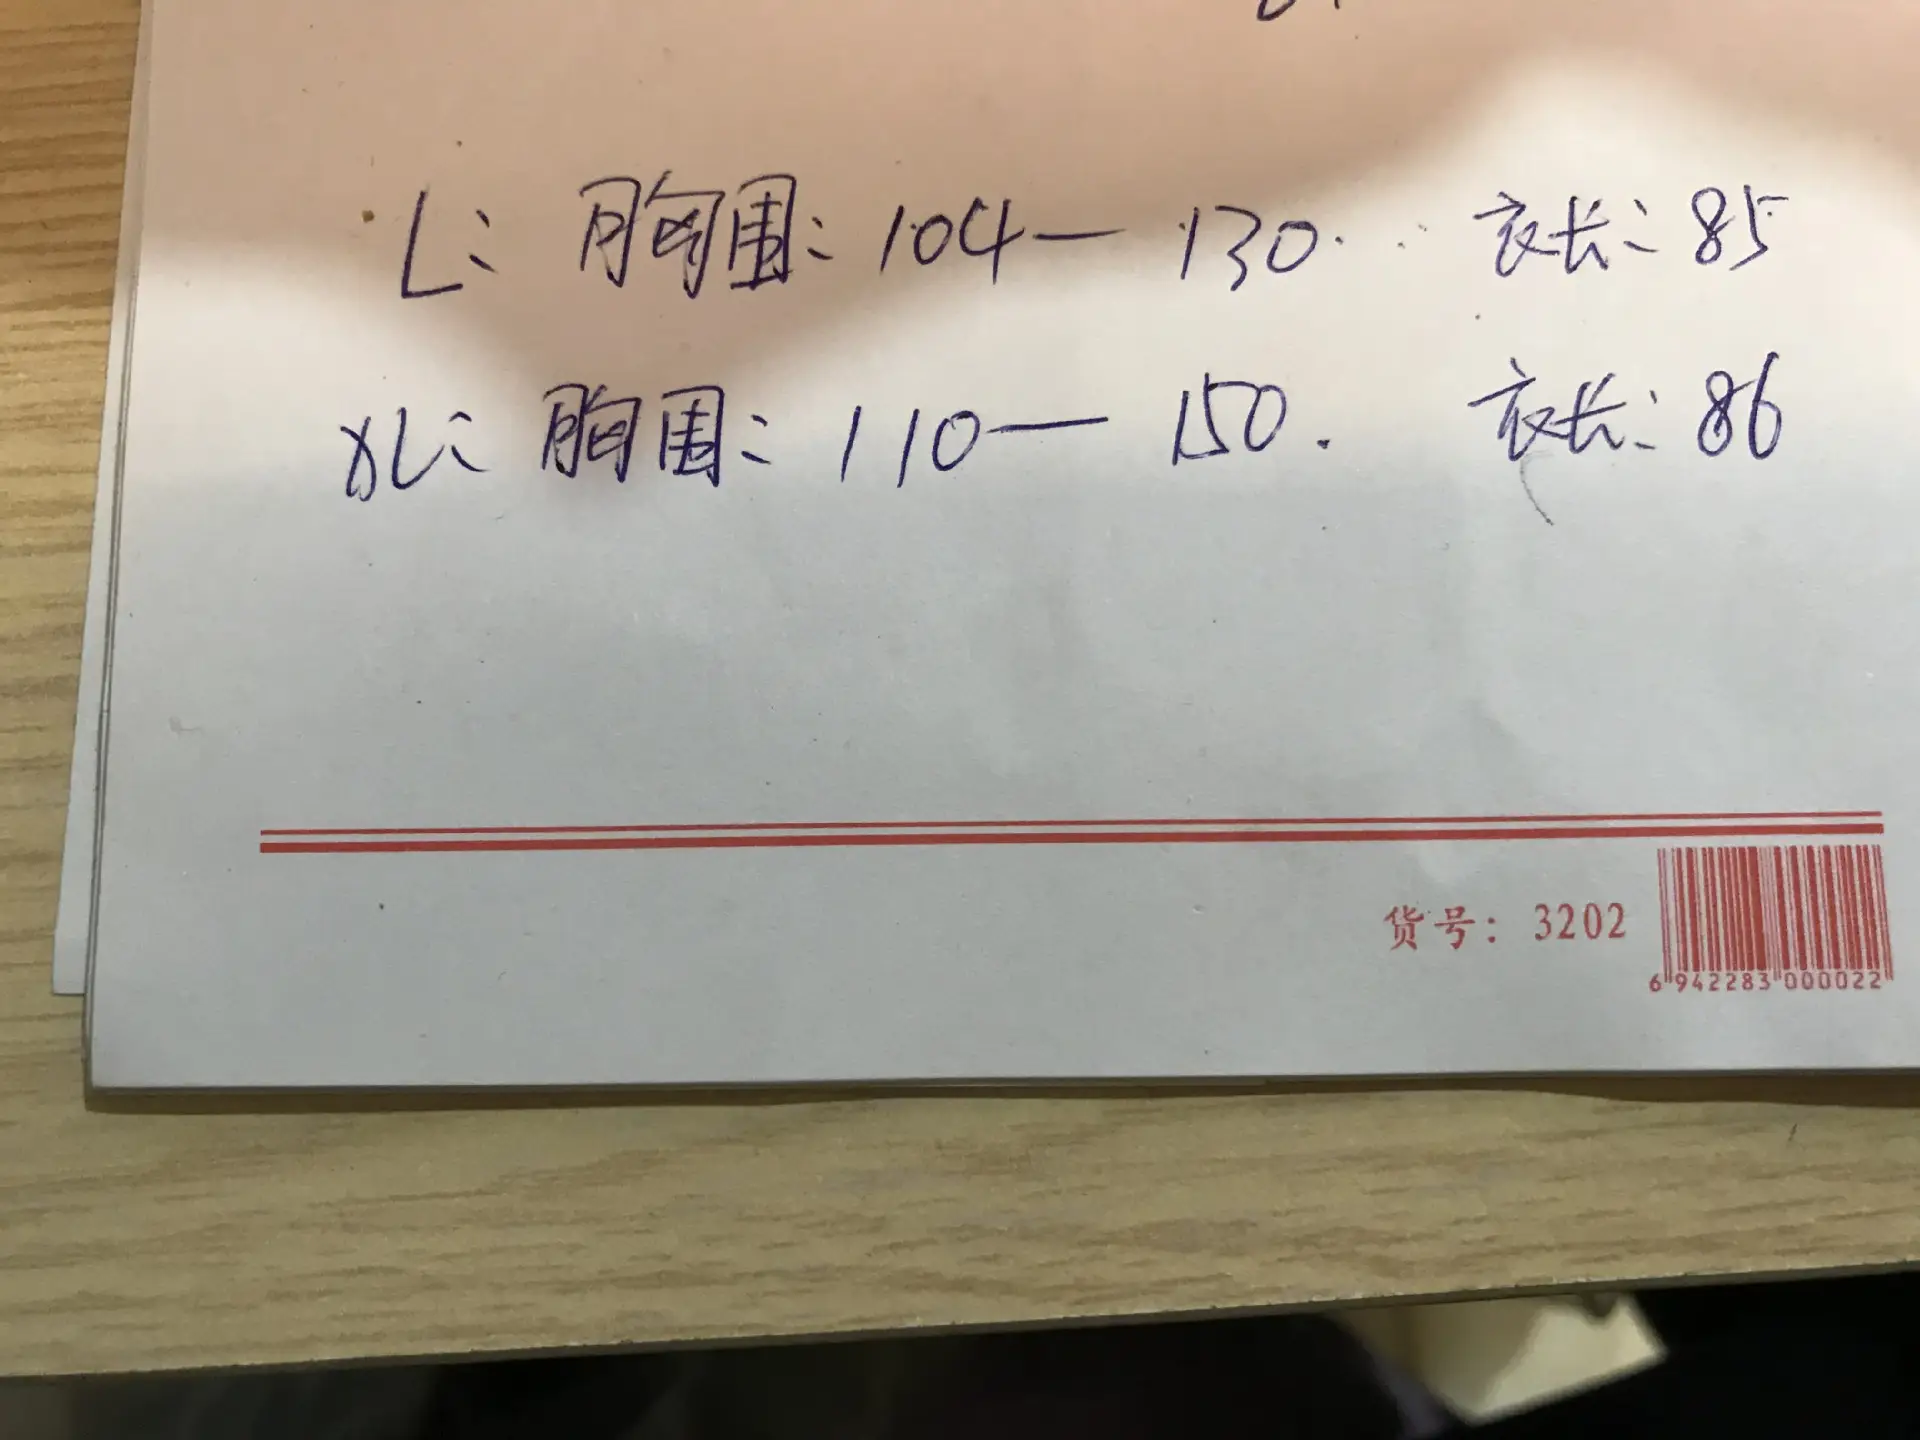 L: 胸围: 104— 130. 衣长: 85
XL: 胸围: 110— 150. 衣长: 86
货号: 3202
6 942283 000022